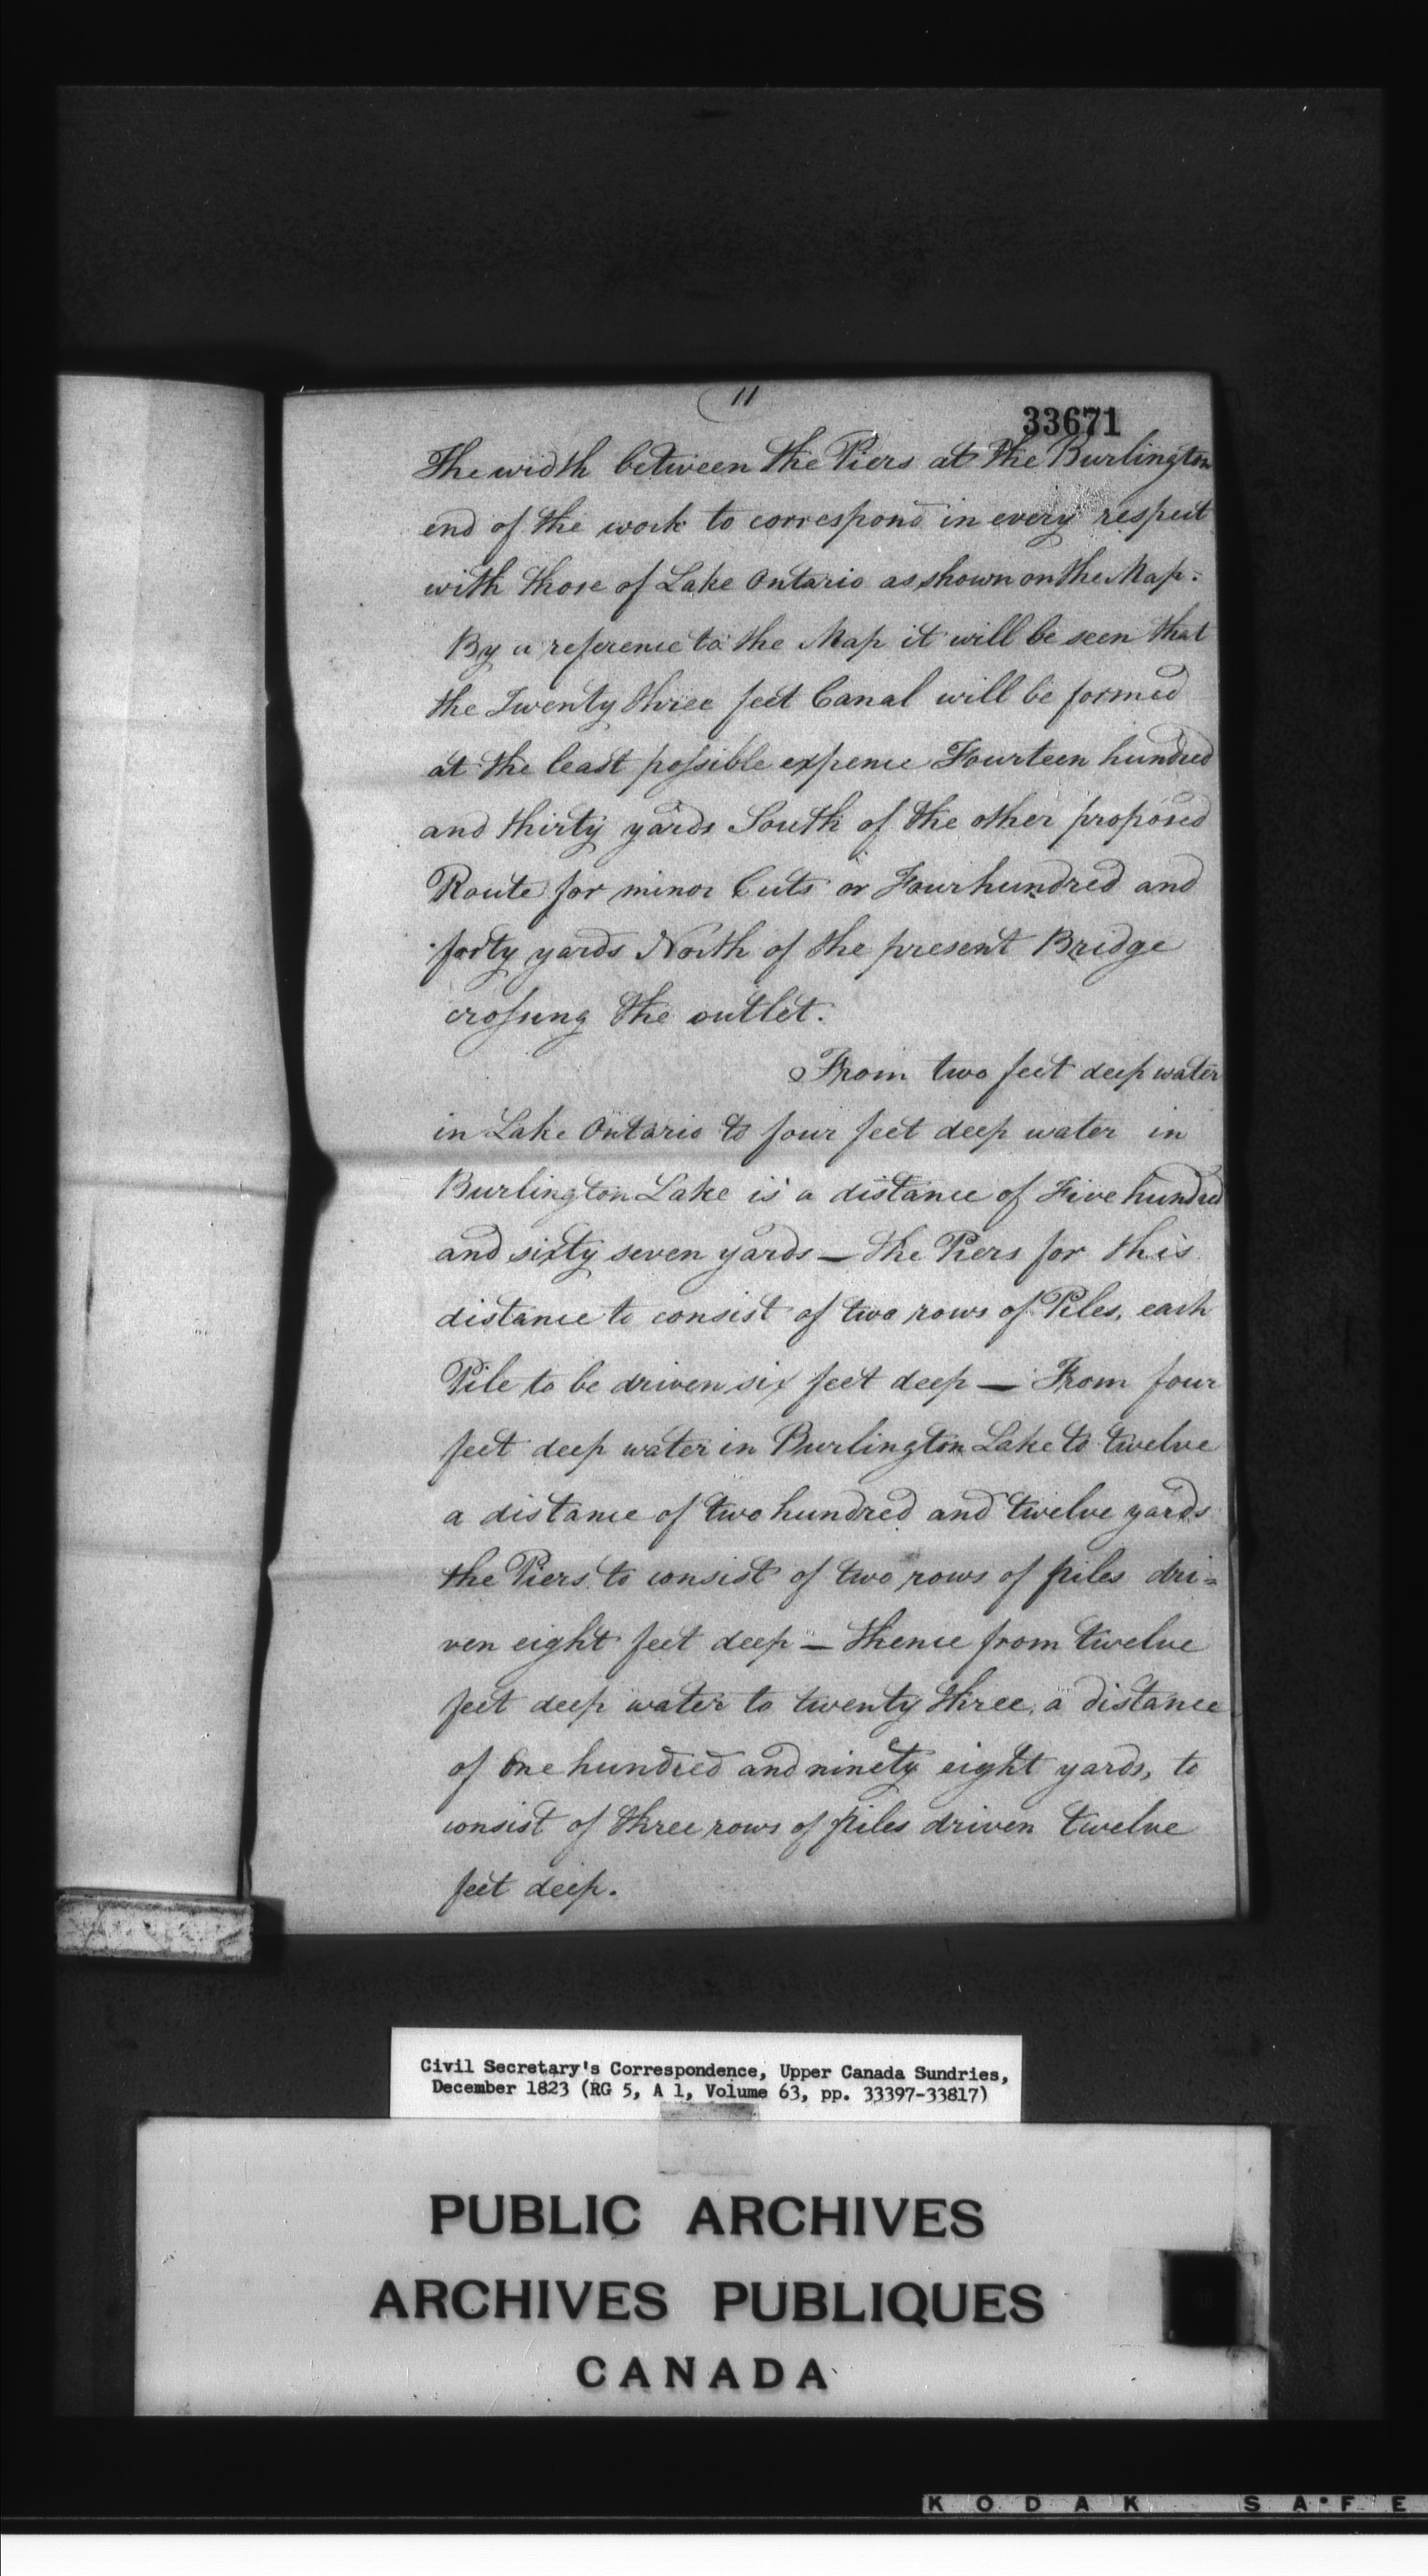 11
33671
The width between the Piers at the Burlington
end of the work to correspond in every respect
with those of Lake Ontario as shown on the Map.
By a reference to the Map it will be seen that
the Twenty three feet Canal will be formed
at the least possible expence Fourteen hundred
and thirty yards South of the other proposed
Route for minor Cuts or Four hundred and
forty yards North of the present Bridge
crossing the outlet.
From two feet deep water
in Lake Ontario to four feet deep water in
Burlington Lake is a distance of Five hundred
and sixty seven yards — the Piers for this
distance to consist of two rows of Piles, each
Pile to be driven six feet deep — From four
feet deep water in Burlington Lake to twelve
a distance of two hundred and twelve yards
the Piers to consist of two rows of piles dri=
ven eight feet deep — thence from twelve
feet deep water to twenty three, a distance
of One hundred and ninety eight yards, to
consist of three rows of piles driven twelve
feet deep.
Civil Secretary's Correspondence, Upper Canada Sundries,
December 1823 (RG 5, A 1, Volume 63, pp. 33397-33817)
PUBLIC ARCHIVES
ARCHIVES PUBLIQUES
CANADA
KODAK SAFE